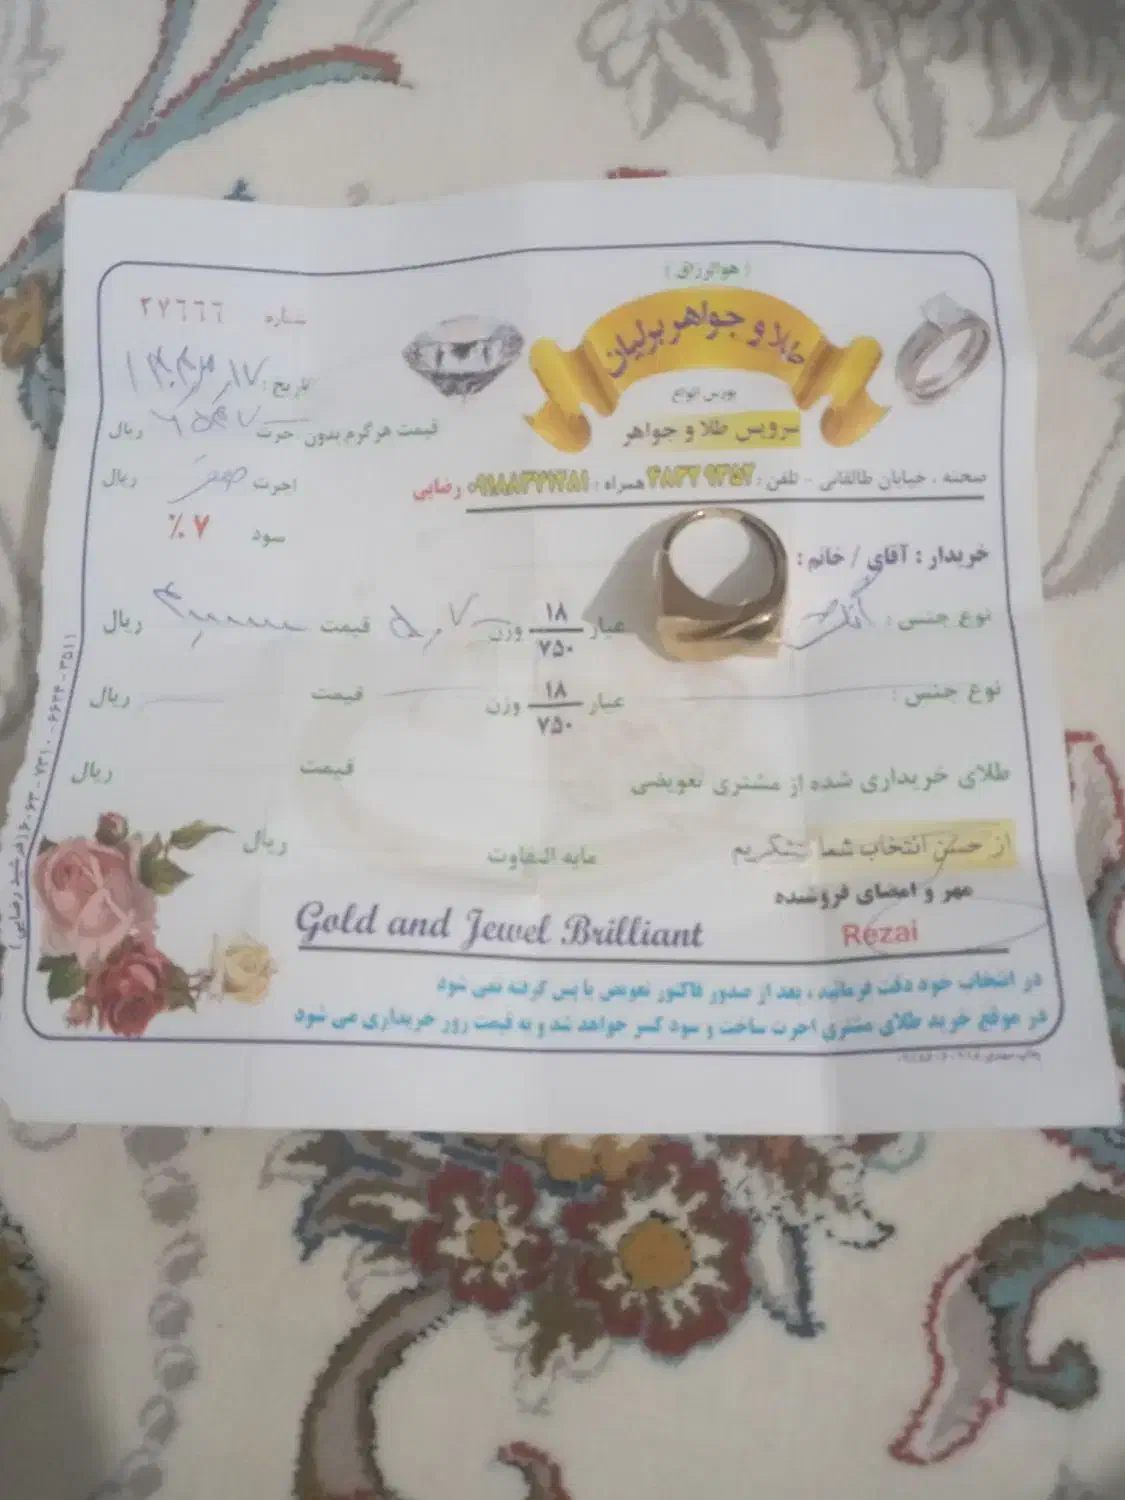 ( هوالرزاق )
طلا و جواهر برلیان
بورس انواع
سرویس طلا و جواهر
صحنه ، خیابان طالقانی - تلفن : ۴۸۳۲۹۳۵۲ همراه : رضایی
شماره ۲۷۶۶۶
تاریخ :
قیمت هر گرم بدون اجرت ریال
اجرت صفر ریال
سود ۷ %
خریدار : آقای / خانم :
نوع جنس : عیار ۱۸/۷۵۰ وزن ۵,۰۷ قیمت ریال
نوع جنس : عیار ۱۸/۷۵۰ وزن قیمت ریال
طلای خریداری شده از مشتری تعویضی قیمت ریال
مابه التفاوت ریال
از حسن انتخاب شما متشکریم
مهر و امضای فروشنده
Rezai
Gold and Jewel Brilliant
در انتخاب خود دقت فرمائید ، بعد از صدور فاکتور تعویض یا پس گرفته نمی شود
در موقع خرید طلای مشتری اجرت ساخت و سود کسر خواهد شد و به قیمت روز خریداری می شود